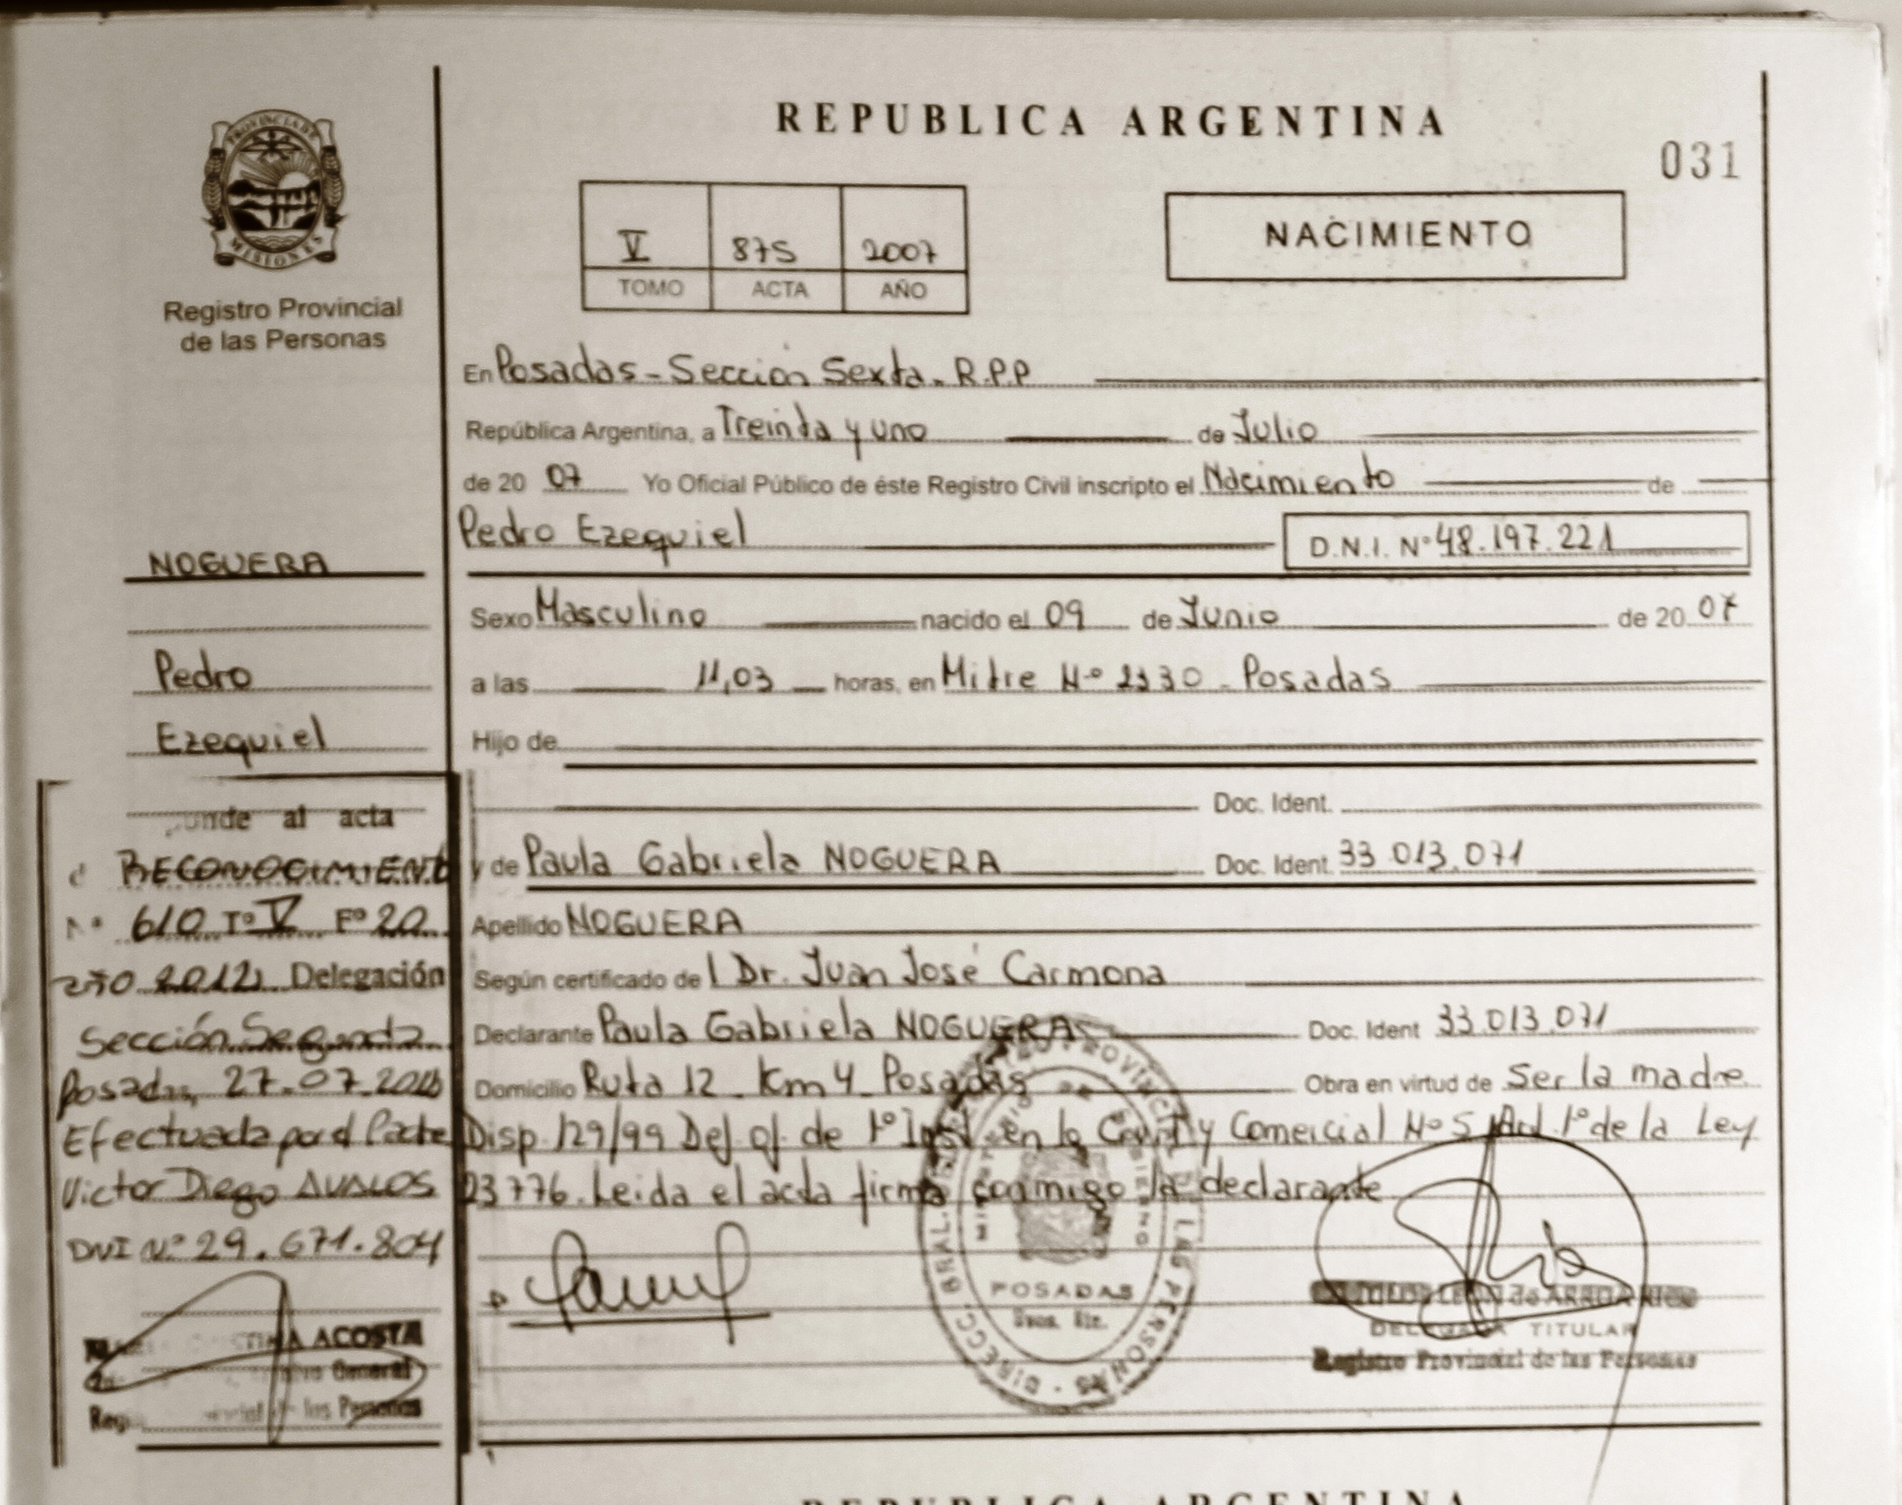 REPUBLICA ARGENTINA
031
PROVINCIA DE
MISIONES
Registro Provincial
de las Personas
V 875 2007
TOMO ACTA AÑO
NACIMIENTO
En Posadas - Sección Sexta. R.P.P
República Argentina, a Treinta y uno de Julio
de 20 07 Yo Oficial Público de éste Registro Civil inscripto el Nacimiento de
Pedro Ezequiel D.N.I. Nº 48.197.221
NOGUERA
Sexo Masculino nacido el 09 de Junio de 20 07
Pedro
a las 11,03 horas, en Mitre Nº 2330 - Posadas
Ezequiel
Hijo de
Doc. Ident.
al acta
RECONOCIMIENTO
y de Paula Gabriela NOGUERA Doc. Ident. 33 013.071
Nº 610 Tº V Fº 20
Apellido NOGUERA
año 2012 Delegación
Según certificado de l Dr. Juan José Carmona
Sección Segunda
Declarante Paula Gabriela NOGUERA Doc. Ident 33.013.071
Posadas, 27.07.
Domicilio Ruta 12 Km 4 Posadas Obra en virtud de Ser la madre
Efectuada por el Padre
Disp. 129/99 Def. of. de 1º Inst en lo Civil y Comercial Nº 5 Art. 1º de la Ley
Victor Diego AVALOS
23776. Leida el acta firma conmigo la declarante
DNI Nº 29.671.804
POSADAS
ACOSTA
General
de las Personas
DELEGADA TITULAR
Registro Provincial de las Personas
REPUBLICA ARGENTINA